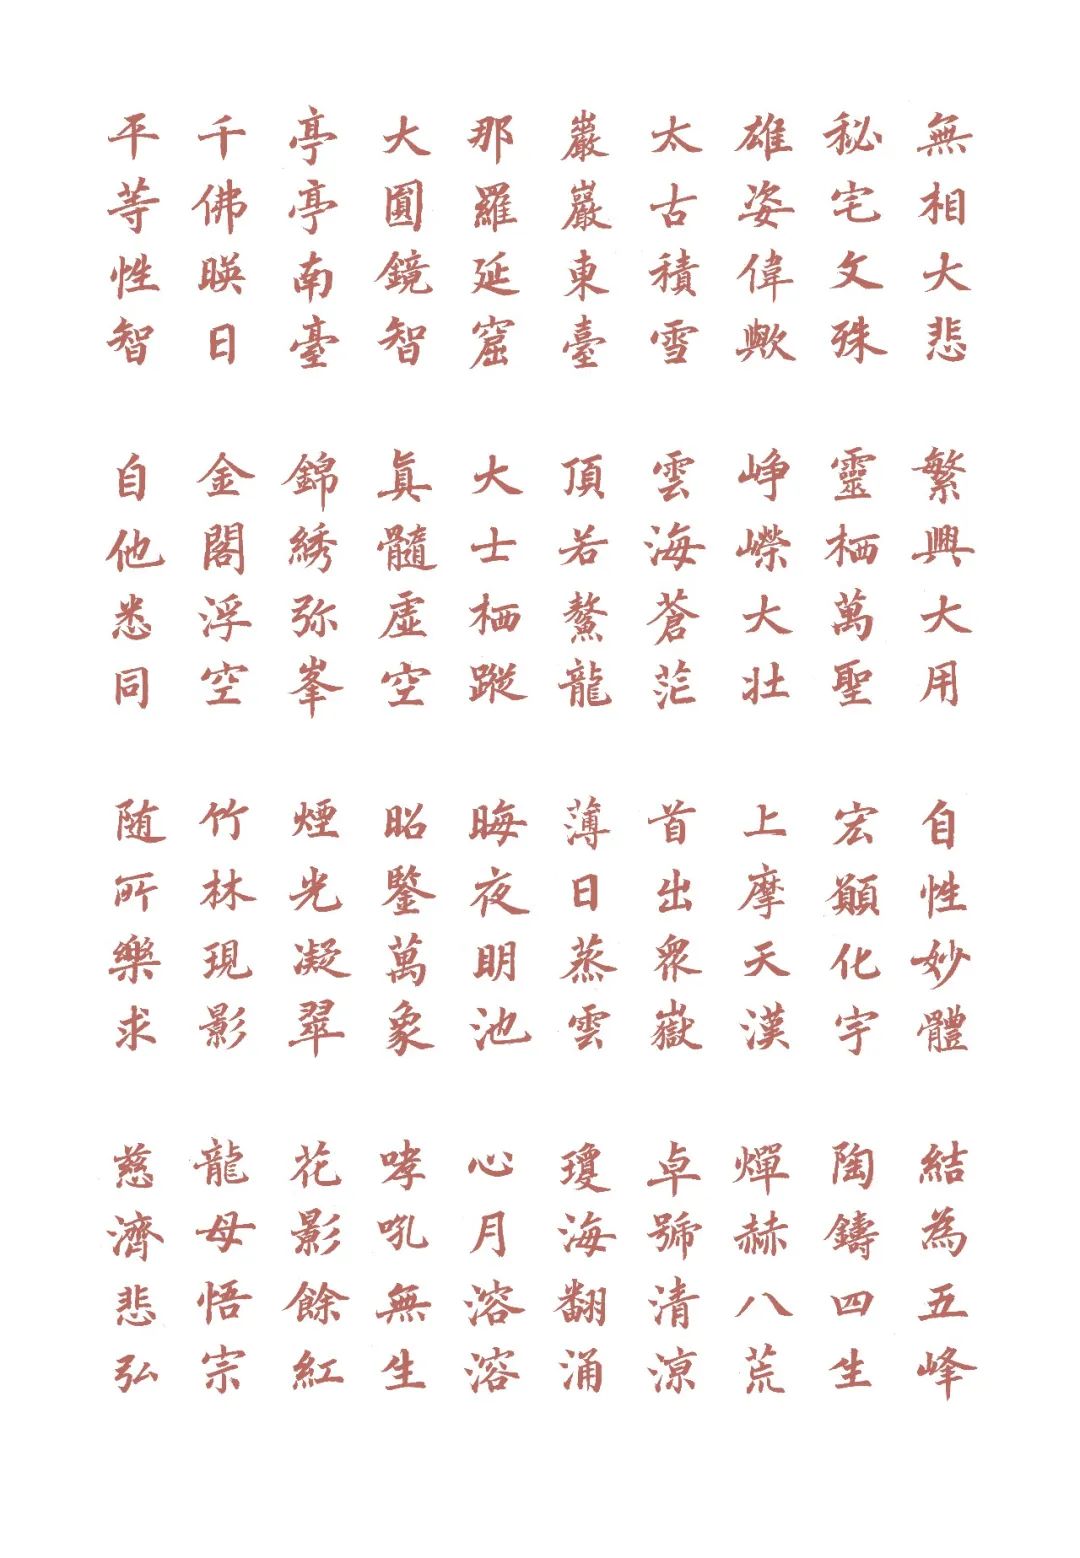 無相大悲 繁興大用 自性妙體 結為五峰
秘宅文殊 靈栖萬聖 宏願化宇 陶鑄四生
雄姿偉歟 崢嶸大壮 上摩天漢 燀赫八荒
太古積雪 雲海蒼茫 首出衆嶽 卓號清涼
巖巖東臺 頂若鰲龍 薄日蒸雲 瓊海翻涌
那羅延窟 大士栖蹤 晦夜明池 心月溶溶
大圓鏡智 眞髓虛空 昭鑒萬象 哮吼無生
亭亭南臺 錦綉弥峯 煙光凝翠 花影餘紅
千佛暎日 金閣浮空 竹林現影 龍母悟宗
平等性智 自他悉同 随所樂求 慈濟悲弘